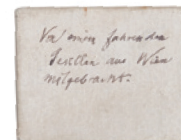 Von einem fahrenden
Gesellen aus Wien
mitgebracht.